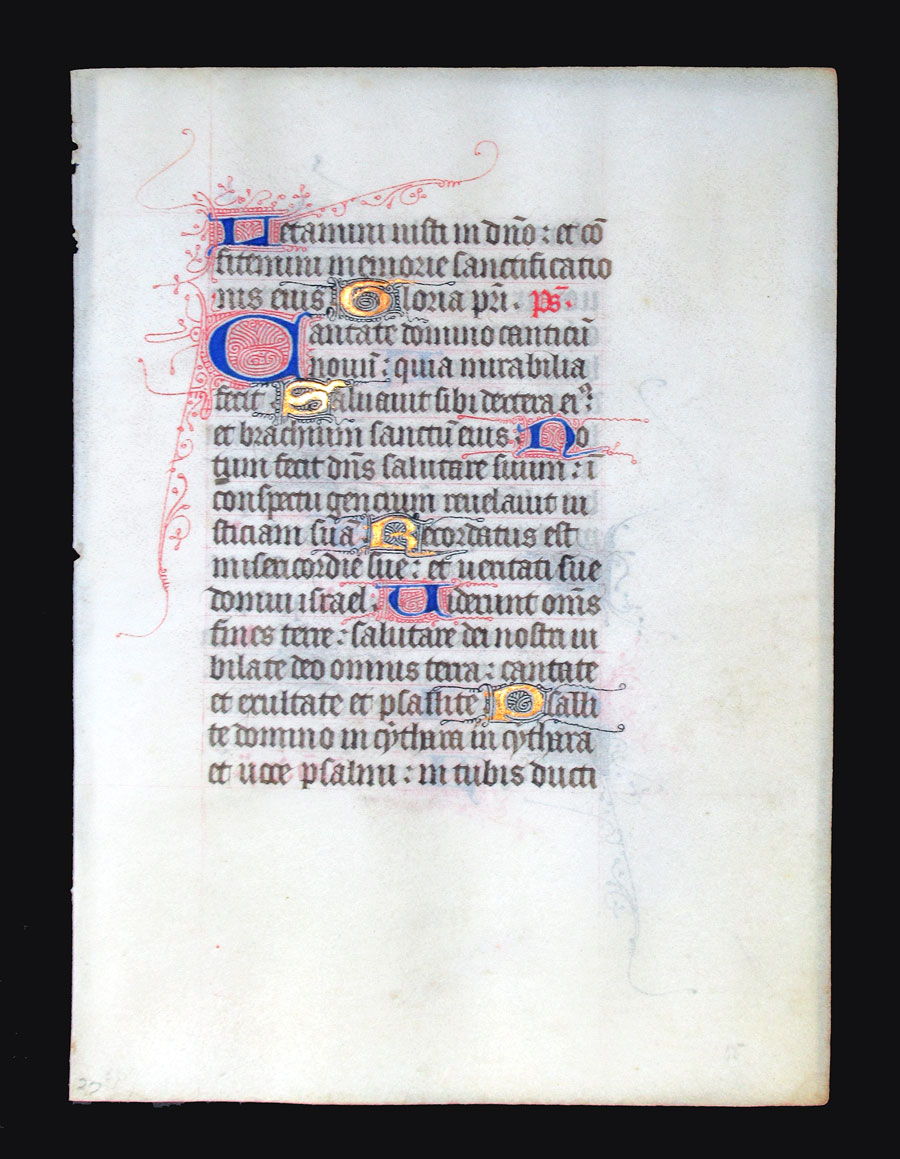 Letamini iusti in dn̄o : et cō
fitemini memorie sanctificatio
nis eius Gloria pr̄i . ps̄ .
Cantate domino canticū
nouū : quia mirabilia
fecit Saluauit sibi dextera eiꝰ :
et brachium sanctū eius . No
tum fecit dn̄s salutare suum : ī
conspectu gencium reuelauit iu
sticiam suā Recordatus est
misericordie sue : et ueritati sue
domui israel . Uiderunt om̄s
fines terre : salutare dei nostri iu
bilate deo omnis terra : cantate
et exultate et psallite Psalli
te domino in cythara in cythara
et uoce psalmi : in tubis ducti
30
15